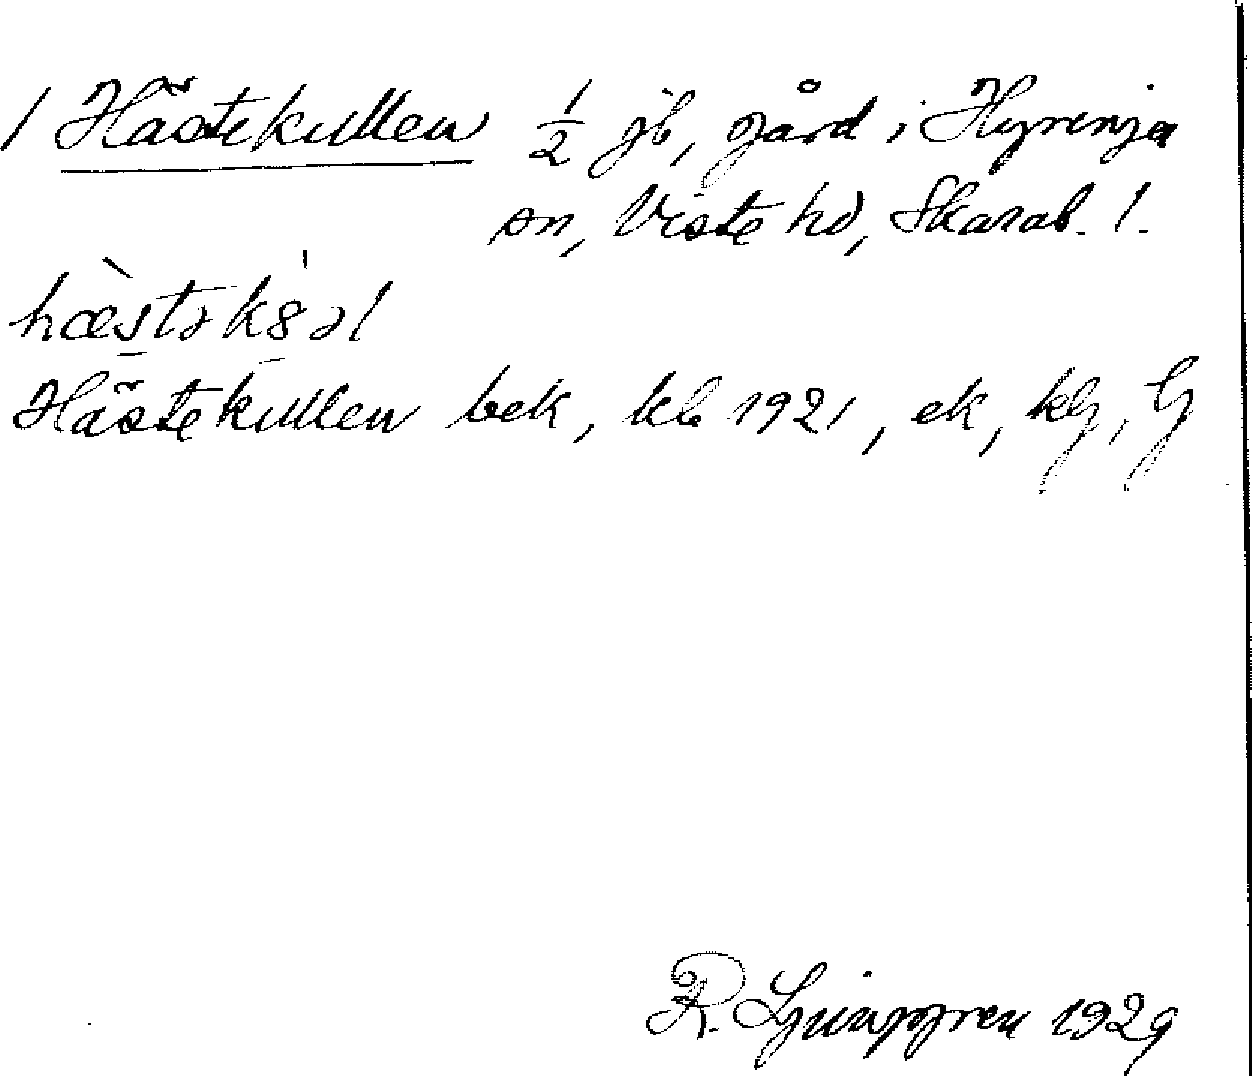 1 Hästekullen 1/2 jb, gård i Hyringa
sn, Viste hd, Skarab. l.
hæ̀stək8́əl
Hästekullen bek, kb 1921, ek, kg, G
R. Ljunggren 1929